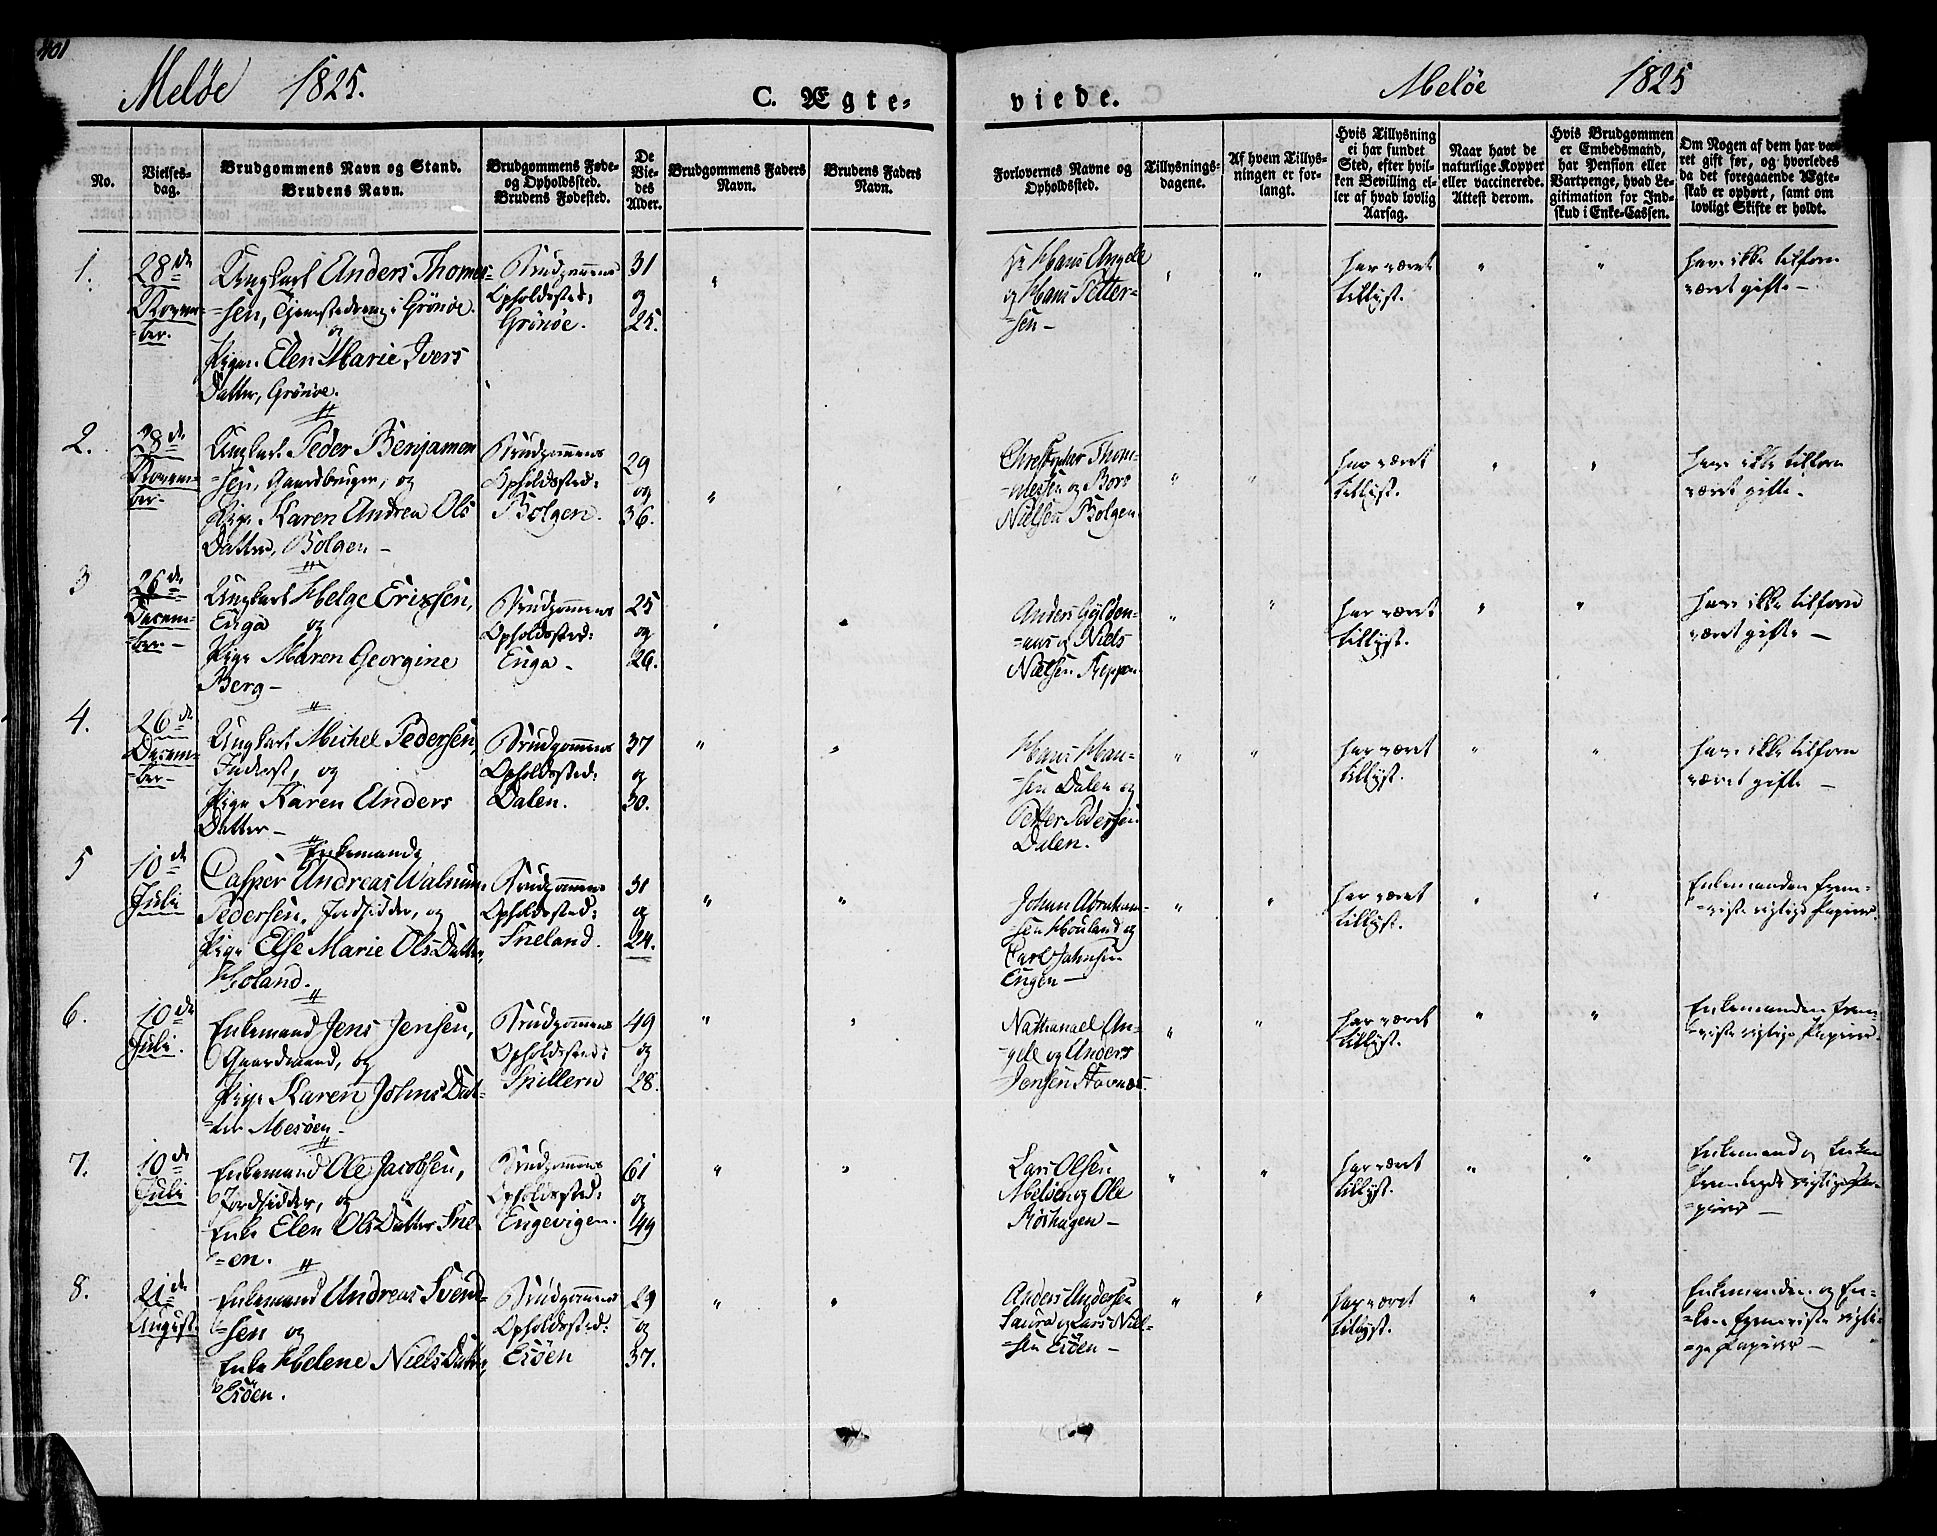 401
Meløe 1825.
C. Ægte-
viede.
Meløe 1825
No.
Vielses-
dag.
Brudgommens Navn og Stand.
Brudens Navn.
Brudgommens Føde-
og Opholdssted.
Brudens Fødested.
De
Vie-
des
Alder.
Brudgommens Faders
Navn.
Brudens Faders
Navn.
Forlovernes Navne og
Opholdssted.
Tillysnings-
dagene.
Af hvem Tillys-
ningen er for-
langt.
Hvis Tillysning
ei har fundet
Sted, efter hvil-
ken Bevilling el-
ler af hvad lovlig
Aarsag.
Naar havt de
naturlige Kopper
eller vaccinerede.
Attest derom.
Hvis Brudgommen
er Embedsmand,
har Pension eller
Vartpenge, hvad Le-
gitimation for Ind-
skud i Enke-Cassen.
Om Nogen af dem har væ-
ret gift før, og hvorledes
da det foregaaende Ægte-
skab er ophørt, samt om
lovligt Skifte er holdt.
1.
28de
Novem-
=ber.
Ungkarl Anders Thomes-
=sen, i Grönöe.
og
Pige Elen Marie Ivers
Datter, Grönöe.
Brudgommens
Opholdssted:
Grönöe.
31
og
25.
Hr Hans Angele
og Hans Petter-
=sen -
har været
tillyst.
have ikke tilforn
været gifte -
2.
28de
Novem-
ber-
Ungkarl Peder Benjamin
=sen, Gaardbruger, og
Pige Karen Andrea Ols
Datter, Bolgen -
Brudgommens
Opholdssted:
Bolgen.
29
og
36.
Christopher Thom-
=mesen og Bore
Nielsen Bolgen
har været
tillyst.
have ikke tilforn
været gifte.
3
26de
Decem-
=ber -
Ungkarl Helge Erixsen,
Enga og
Pige Maren Georgine
Berg -
Brudgommens
Opholdssted:
Enga -
25
og
26.
Anders
og Niels
Nielsen
har været
tillyst.
have ikke tilforn
været gifte -
4.
26de
Decem-
=ber -
Ungkarl Michel Pedersen,
Inderst, og
Pige Karen Anders
Datter -
Brudgommens
Opholdssted:
Dalen.
37
og
30.
Hans Han-
=sen Dalen og
Petter Pedersen
Dalen.
har været
tillyst.
have ikke tilforn
været gifte -
5
10de
Juli
Enkemand
Casper Andreas Walnum
Pedersen, Jordsidder, og
Pige Else Marie Ols Datter,
Holand.
Brudgommens
Opholdssted:
Sneland.
31
og
24.
Johan Abraham-
=sen Houland og
Carl Johnsen
Engen -
har været
tillyst.
Enkemanden frem-
=viste rigtige Papirer.
6.
10de
Juli.
Enkemand Jens Jensen,
Gaardmand, og
Pige Karen Johns Dat-
=ter Mesöen -
Brudgommens
Opholdssted:
Spillern
49
og
28.
Nathanael An-
gele og Anders
Jensen Stavnæs
har været
tillyst.
Enkemanden frem-
=viste rigtige Papirer.
7.
10de
Juli
Enkemand Ole Jacobsen,
Jordsidder, og
Enke Elen Ols Datter Sne-
=en.
Brudgommens
Opholdssted:
Engevigen.
61
og
49
Lars Olsen
Meløe og Ole
Röshagen -
har været
tillyst.
Enkemand og Enken
fremlagde rigtige Pa-
=pirer -
8.
21de
August.
Enkemand Andreas Svend-
=sen og
Enke Helene Niels Datter,
Esöen.
Brudgommens
Opholdssted:
Esöen
29
og
37.
Anders Andersen
Saura og Lars Niel-
=sen Esöen -
har været
tillyst.
Enkemanden og En-
=ken fremviste rigti-
=ge Papirer -